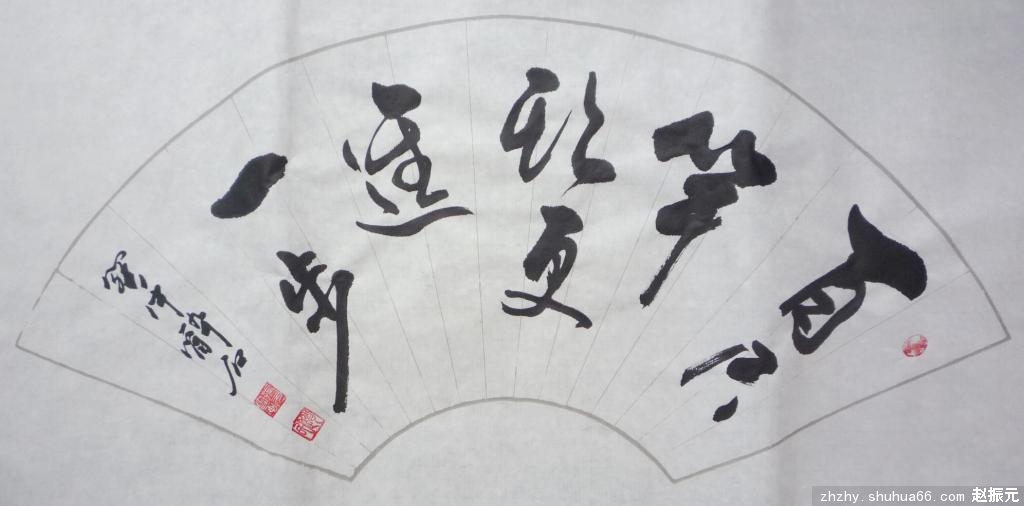 百尺
竿
頭更
進
一步
zhzhy.shuhua66.com 赵振元